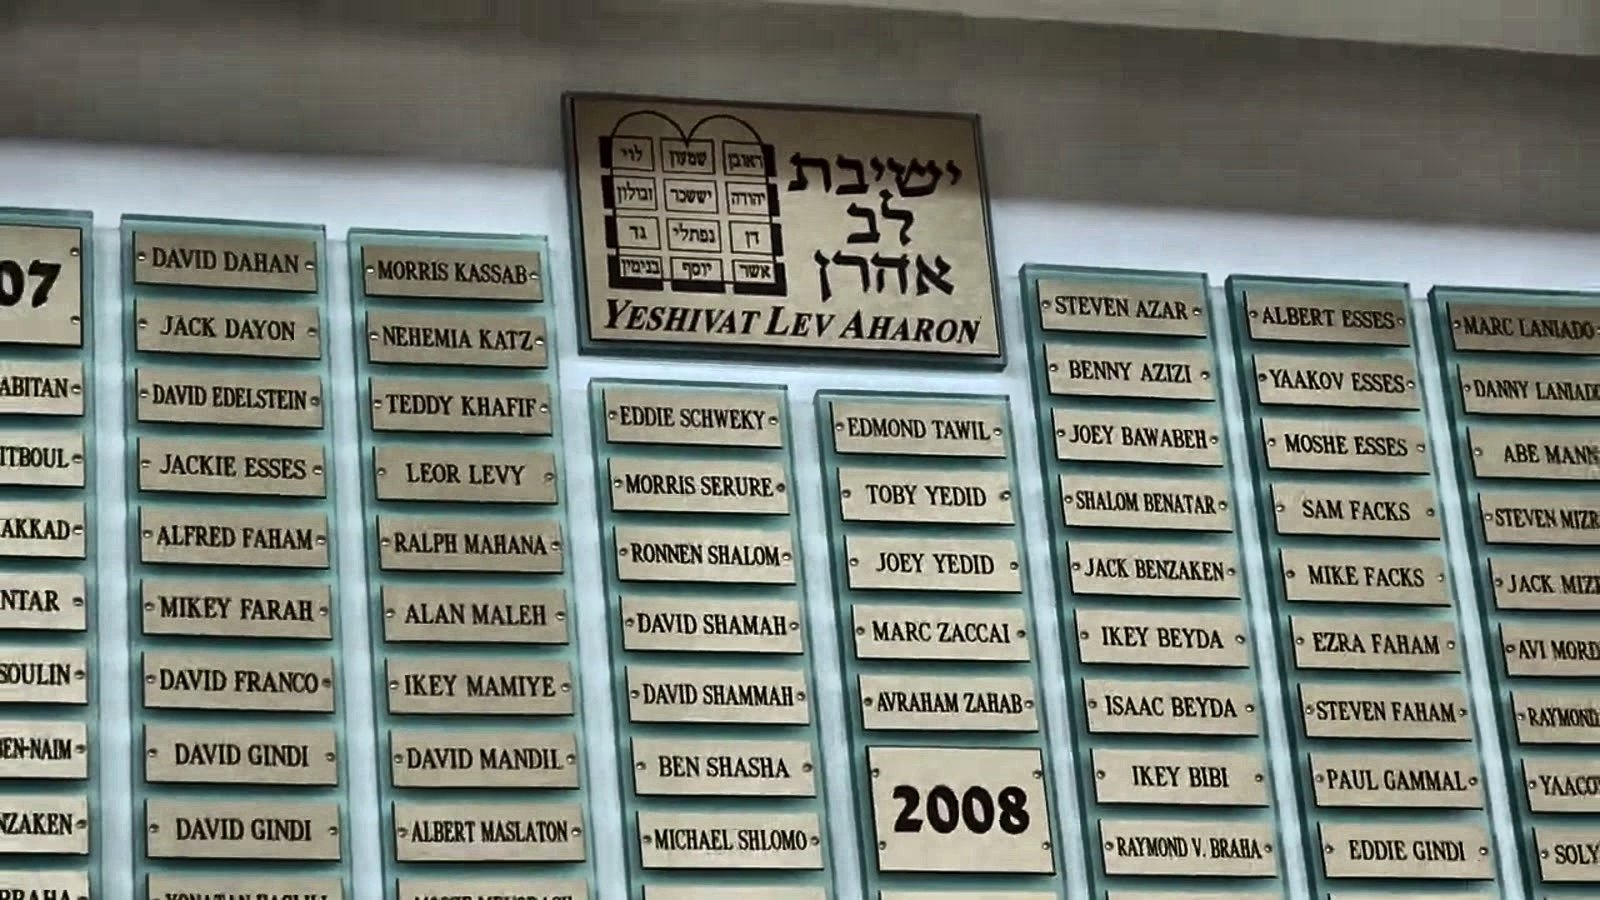 07
ABITAN
ITBOUL
AKKAD
NTAR
SOULIN
EN-NAIM
NZAKEN
DAVID DAHAN
JACK DAYON
DAVID EDELSTEIN
JACKIE ESSES
ALFRED FAHAM
MIKEY FARAH
DAVID FRANCO
DAVID GINDI
DAVID GINDI
MORRIS KASSAB
NEHEMIA KATZ
TEDDY KHAFIF
LEOR LEVY
RALPH MAHANA
ALAN MALEH
IKEY MAMIYE
DAVID MANDIL
ALBERT MASLATON
ראובן שמעון לוי
יהודה יששכר זבולון
דן נפתלי גד
אשר יוסף בנימין
ישיבת
לב
אהרן
YESHIVAT LEV AHARON
EDDIE SCHWEKY
MORRIS SERURE
RONNEN SHALOM
DAVID SHAMAH
DAVID SHAMMAH
BEN SHASHA
MICHAEL SHLOMO
EDMOND TAWIL
TOBY YEDID
JOEY YEDID
MARC ZACCAI
AVRAHAM ZAHAB
2008
STEVEN AZAR
BENNY AZIZI
JOEY BAWABEH
SHALOM BENATAR
JACK BENZAKEN
IKEY BEYDA
ISAAC BEYDA
IKEY BIBI
RAYMOND V. BRAHA
ALBERT ESSES
YAAKOV ESSES
MOSHE ESSES
SAM FACKS
MIKE FACKS
EZRA FAHAM
STEVEN FAHAM
PAUL GAMMAL
EDDIE GINDI
MARC LANIADO
DANNY LANIAD
ABE MANN
STEVEN MIZR
JACK MIZ
AVI MORD
RAYMOND
YAACO
SOLY